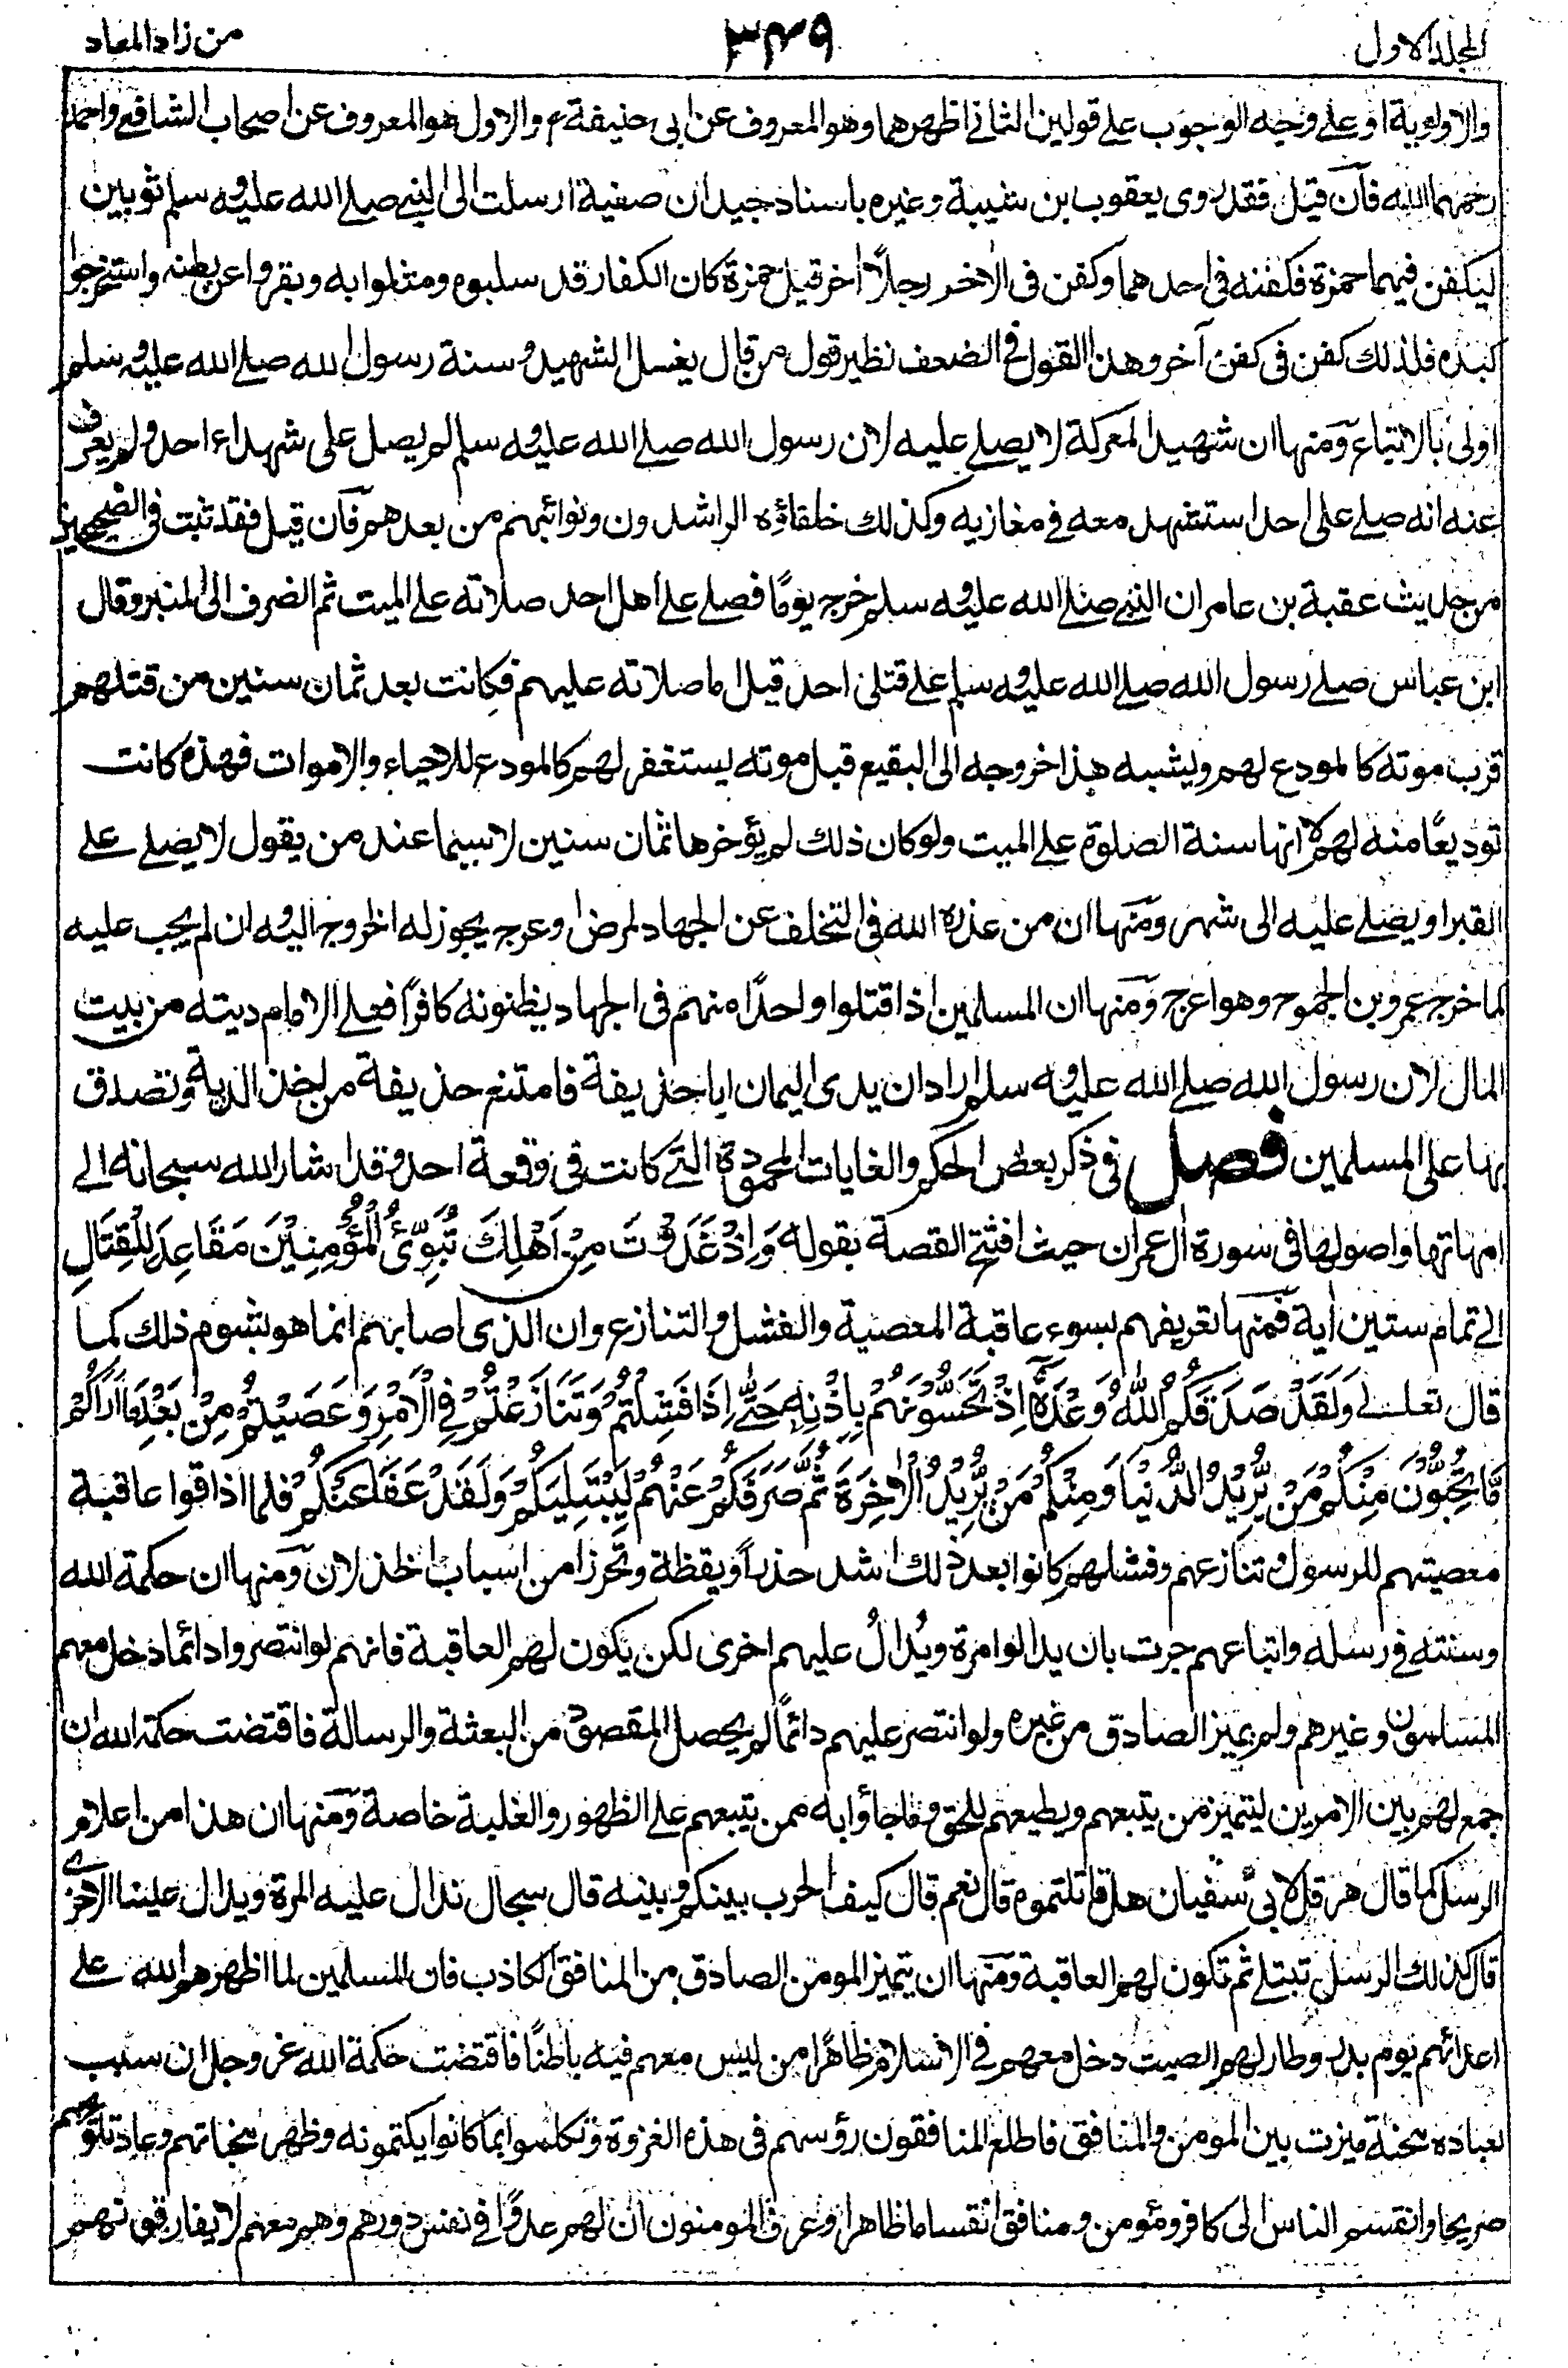 المجلد الاول
٣٤٩
من زاد المعاد
والاولوية او على وجه الوجوب على قولين الثاني اظهرهما وهو المعروف عن ابي حنيفة م والاول هو المعروف عن اصحاب الشافعي واحمد
رحمهما الله فان قيل فقد روى يعقوب بن شيبة وغيره باسناد جيد ان صفية ارسلت الى النبي صلى الله عليه وسلم ثوبين
ليكفن فيهما حمزة فكفنه في احدهما وكفن في الاخر رجلاً آخر قيل حمزة كان الكفار قد سلبوه ومثلوا به وبقروا عن بطنه واستخرجوا
كبده فلذلك كفن في كفن آخر وهذا القول في الضعف نظير قول من قال يغسل الشهيد وسنة رسول الله صلى الله عليه وسلم
اولى بالاتباع ومنها ان شهيد المعركة لا يصلى عليه لان رسول الله صلى الله عليه وسلم لم يصل على شهداء احد ولم يعرف
عنه انه صلى على احد استشهد معه في مغازيه وكذلك خلفاؤه الراشدون ونوائبهم من بعدهم فان قيل فقد ثبت في الصحيحين
من حديث عقبة بن عامر ان النبي صلى الله عليه وسلم خرج يومًا فصلى على اهل احد صلاته على الميت ثم انصرف الى المنبر وقال
ابن عباس صلى رسول الله صلى الله عليه وسلم على قتلى احد قيل اما صلاته عليهم فكانت بعد ثمان سنين من قتلهم
قرب موته كالمودع لهم ويشبه هذا خروجه الى البقيع قبل موته يستغفر لهم كالمودع للاحياء والاموات فهذه كانت
توديعًا منه لهم لا انها سنة الصلوة على الميت ولو كان ذلك لم يؤخرها ثمان سنين لا سيما عند من يقول لا يصلى على
القبر او يصلى عليه الى شهر ومنها ان من عذره الله في التخلف عن الجهاد لمرض او عرج يجوز له الخروج اليه وان لم يجب عليه
كما خرج عمرو بن الجموح وهو اعرج ومنها ان المسلمين اذا قتلوا واحدًا منهم في الجهاد يظنونه كافرًا فعلى الامام ديته من بيت
المال لان رسول الله صلى الله عليه وسلم اراد ان يدى اليمان ابا حذيفة فامتنع حذيفة من اخذ الدية وتصدق
بها على المسلمين فصل في ذكر بعض الحكم والغايات المحمودة التي كانت في وقعة احد وقد اشار الله سبحانه الى
امهاتها واصولها في سورة آل عمران حيث افتتح القصة بقوله وَاِذْ غَدَوْتَ مِنْ اَهْلِكَ تُبَوِّئُ الْمُؤْمِنِيْنَ مَقَاعِدَ لِلْقِتَالِ
الى تمام ستين آية فمنها تعريفهم بسوء عاقبة المعصية والفشل والتنازع وان الذي اصابهم انما هو بشوم ذلك كما
قال تعالى وَلَقَدْ صَدَقَكُمُ اللّٰهُ وَعْدَهٗ اِذْ تَحُسُّوْنَهُمْ بِاِذْنِهٖ حَتّٰى اِذَا فَشِلْتُمْ وَتَنَازَعْتُمْ فِي الْاَمْرِ وَعَصَيْتُمْ مِنْ بَعْدِ مَا اَرَاكُمْ
مَّا تُحِبُّوْنَ مِنْكُمْ مَنْ يُّرِيْدُ الدُّنْيَا وَمِنْكُمْ مَنْ يُّرِيْدُ الْاٰخِرَةَ ثُمَّ صَرَفَكُمْ عَنْهُمْ لِيَبْتَلِيَكُمْ وَلَقَدْ عَفَا عَنْكُمْ فلما اذاقوا عاقبة
معصيتهم للرسول وتنازعهم وفشلهم كانوا بعد ذلك اشد حذرًا ويقظة وتحرزا من اسباب الخذلان ومنها ان حكمة الله
وسنته في رسله واتباعهم جرت بان يدالوا مرة ويُدالُ عليهم اخرى لكن يكون لهم العاقبة فانهم لو انتصروا دائما دخل معهم
المسلمون وغيرهم ولم يميز الصادق من غيره ولو انتصر عليهم دائمًا لم يحصل المقصود من البعثة والرسالة فاقتضت حكمة الله ان
جمع لهم بين الامرين ليتميز من يتبعهم ويطيعهم للحق وما جاؤا به ممن يتبعهم على الظهور والغلبة خاصة ومنها ان هذا من اعلام
الرسل كما قال هرقل لابي سفيان هل قاتلتموه قال نعم قال كيف الحرب بينكم وبينه قال سجال ندال عليه المرة ويدال علينا الاخرى
قال كذلك الرسل تبتلى ثم تكون لهم العاقبة ومنها ان يتميز المومن الصادق من المنافق الكاذب فان المسلمين لما اظهرهم الله على
اعدائهم يوم بدر وطار لهم الصيت دخل معهم في الاسلام ظاهرًا من ليس معهم فيه باطنًا فاقتضت حكمة الله عز وجل ان سبب
لعباده محنة ميزت بين المومن والمنافق فاطلع المنافقون رؤسهم في هذه الغزوة وتكلموا بما كانوا يكتمونه وظهر مخباتهم وعاد تلويحهم
صريحا وانقسم الناس الى كافر ومؤمن ومنافق انقساما ظاهرا وعرف المومنون ان لهم عدوًا في نفس دورهم وهم معهم لا يفارقونهم